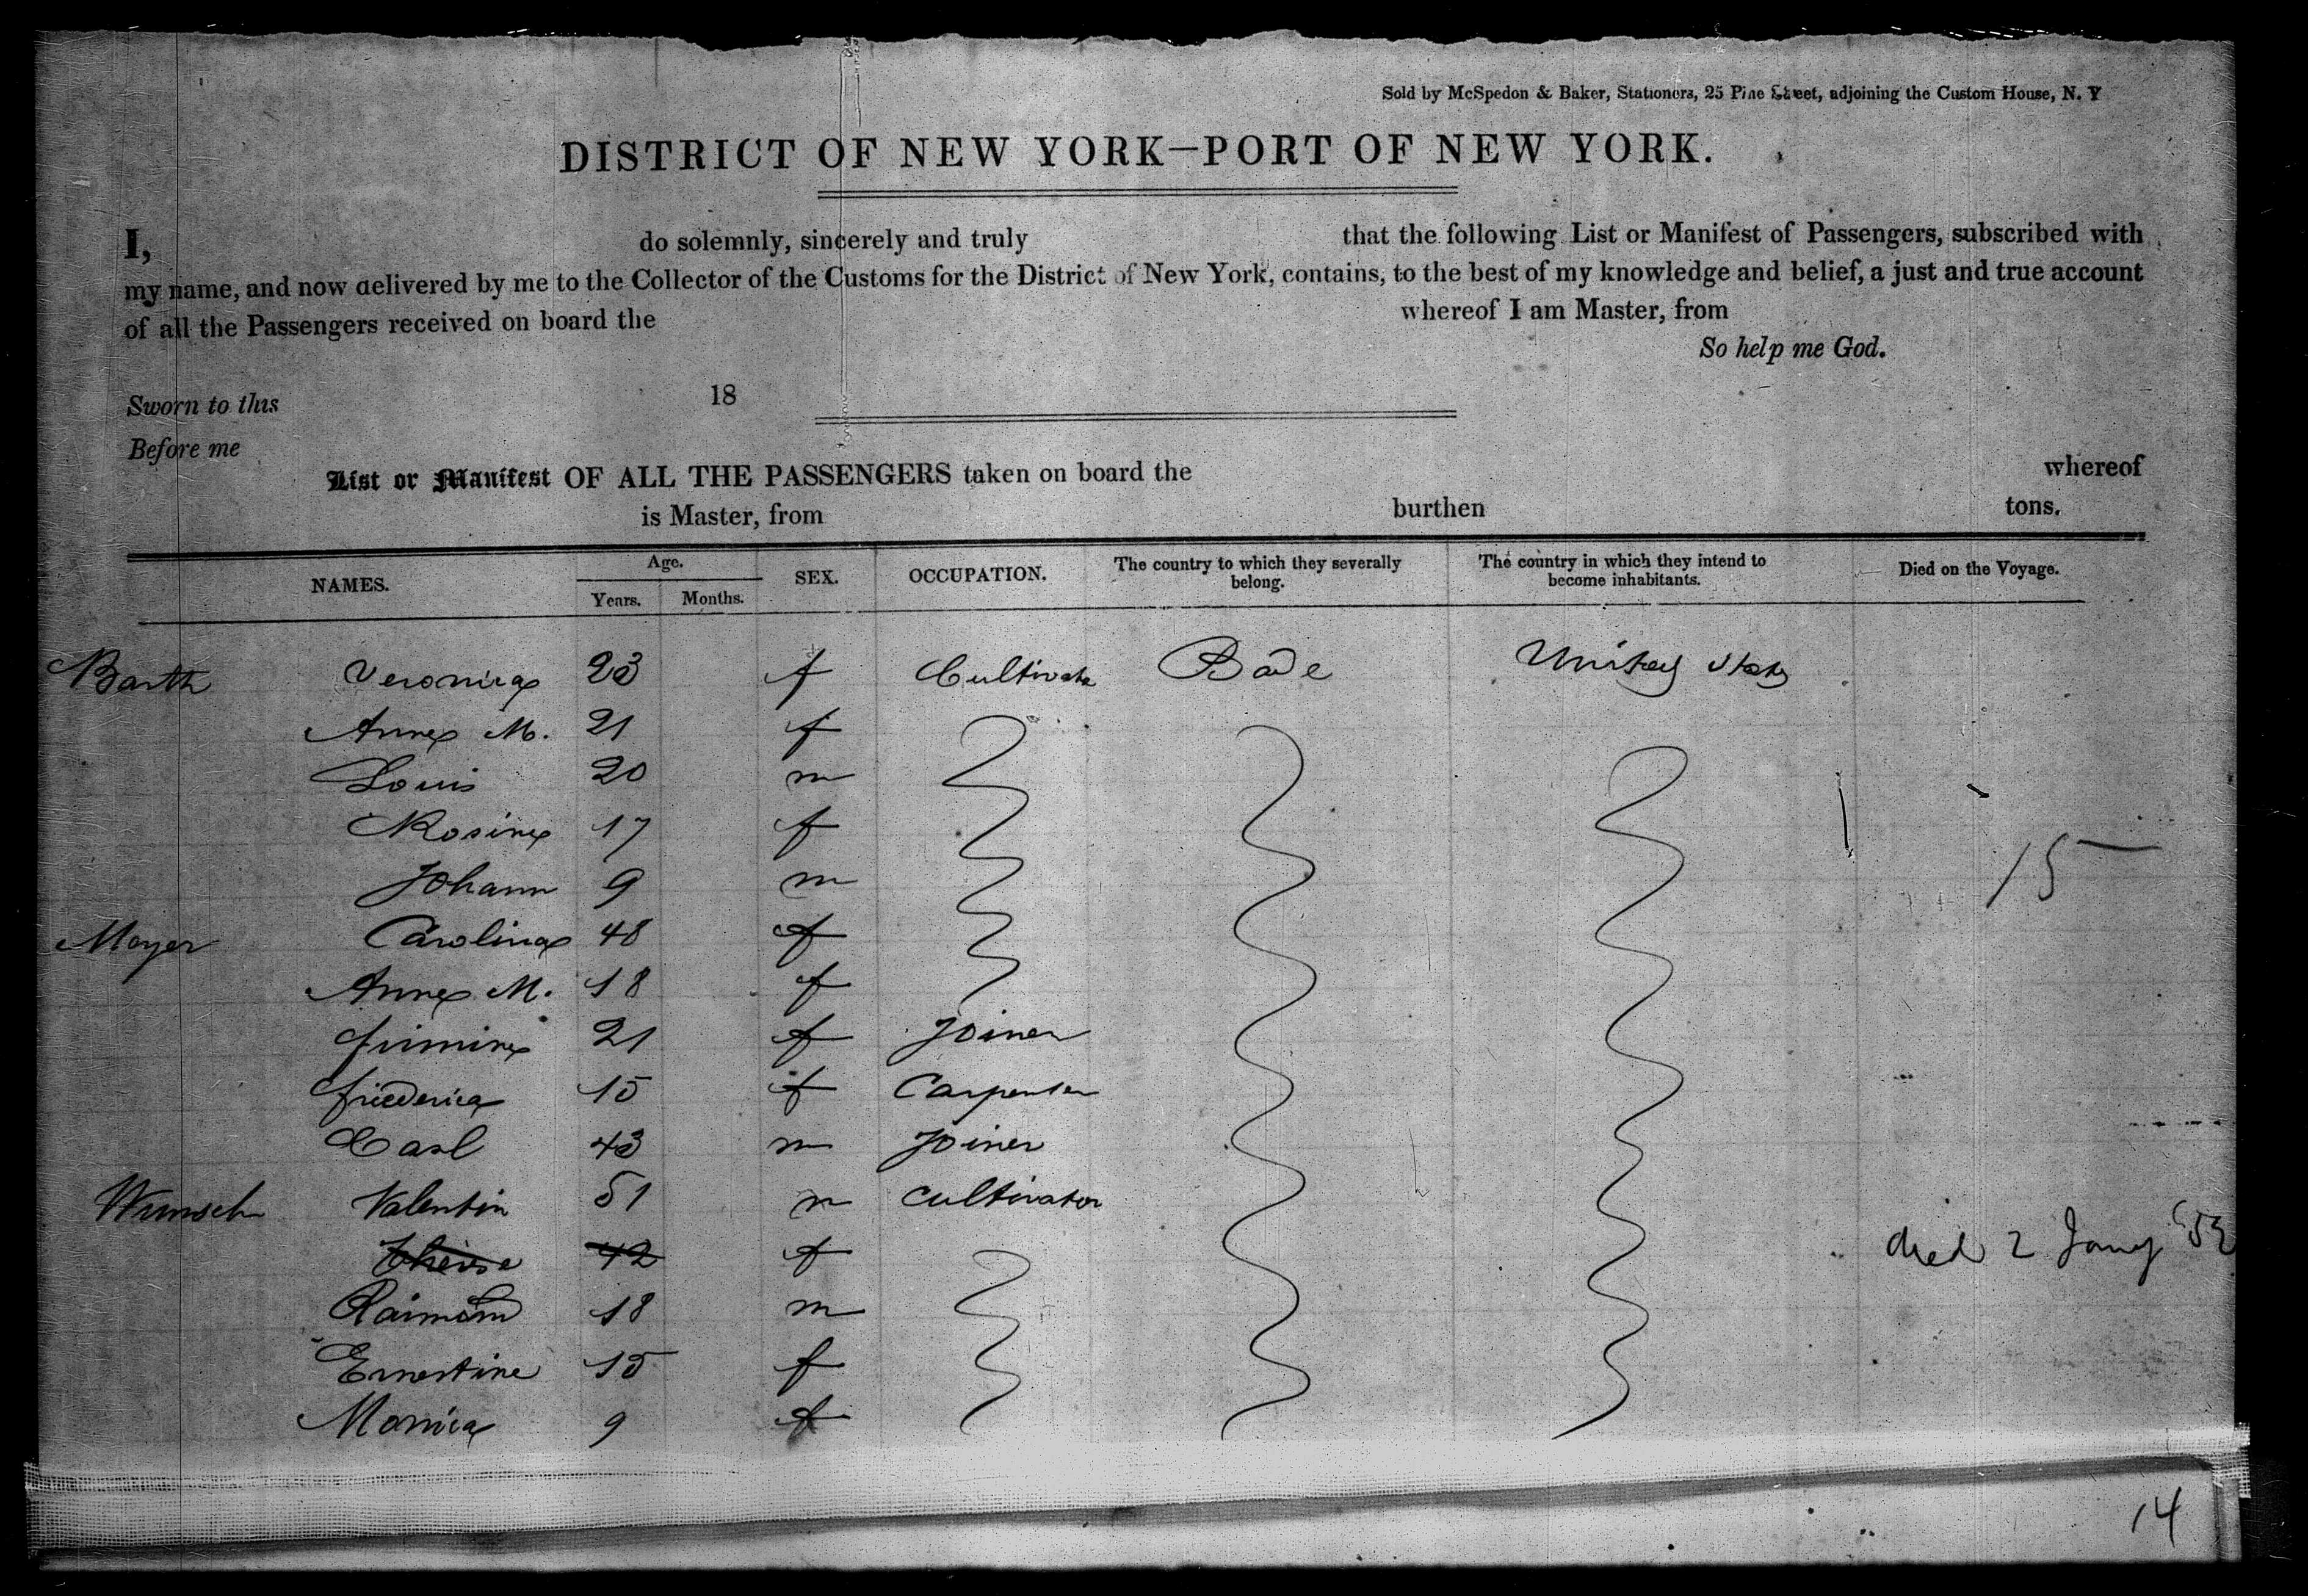 Sold by McSpedon & Baker, Stationers, 25 Pine Street, adjoining the Custom House, N. Y
DISTRICT OF NEW YORK—PORT OF NEW YORK.
I, do solemnly, sincerely and truly that the following List or Manifest of Passengers, subscribed with
my name, and now delivered by me to the Collector of the Customs for the District of New York, contains, to the best of my knowledge and belief, a just and true account
of all the Passengers received on board the whereof I am Master, from
So help me God.
Sworn to this 18
Before me
List or Manifest OF ALL THE PASSENGERS taken on board the whereof
is Master, from burthen tons.
NAMES. Age. Years. Months. SEX. OCCUPATION. The country to which they severally belong. The country in which they intend to become inhabitants. Died on the Voyage.
Barth Veronica 23 f Cultivate Bade United States
Anna M. 21 f
Louis 20 m
Rosina 17 f
Johann 9 m
15
Mayer Carolina 48 f
Anna M. 18 f
21 f Joiner
friederica 15 f Carpenter
Carl 43 m Joiner
Wunsch Valentin 51 m Cultivator
42 f died 2 Jany
Raimond 18 m
Ernestine 15 f
Monica 9 f
14